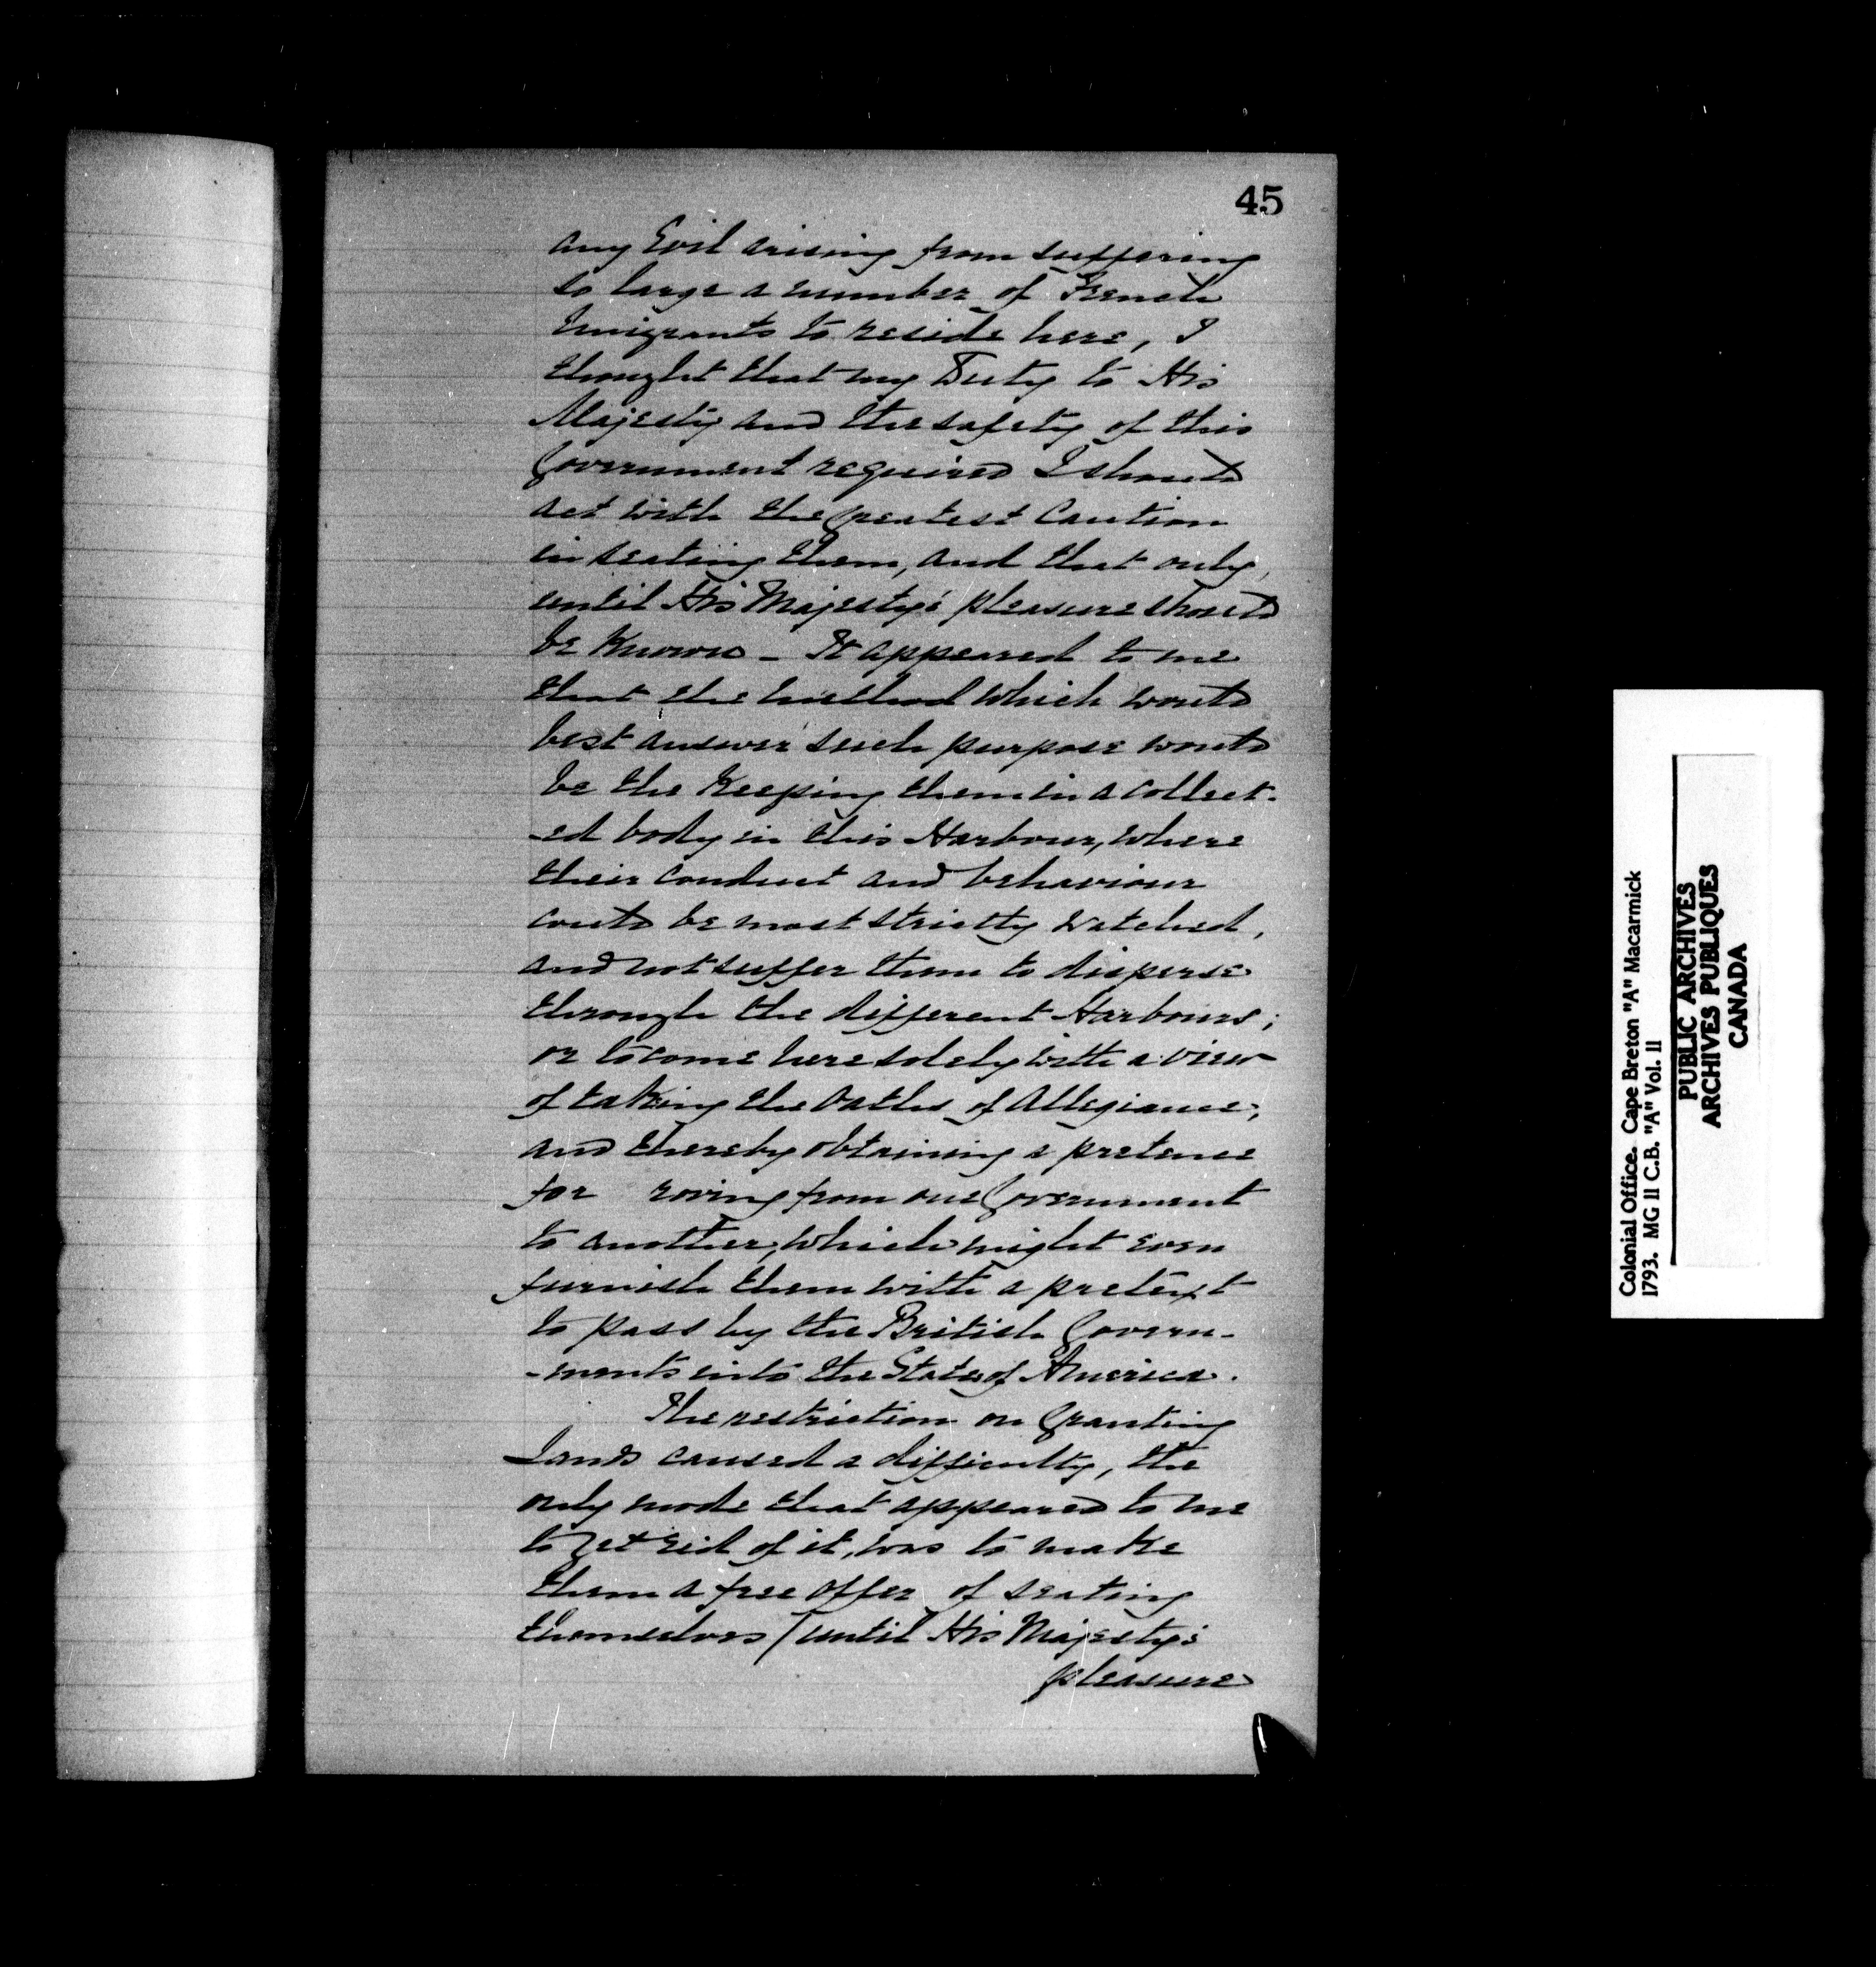 45
any Evil arising from suffering
so large a number of French
Emigrants to reside here, I
thought that my Duty to His
Majesty and the safety of this
Government required I should
act with the greatest Caution
in seating them, and that only,
until His Majesty's pleasure should
be known - It appeared to me
that the method which would
best answer such purpose would
be the keeping them in a collect-
-ed body in this Harbour, where
their conduct and behaviour
could be most strictly watched,
and not suffer them to disperse
through the different Harbours;
or to come here solely with a view
of taking the Oaths of Allegiance,
and thereby obtaining a pretence
for roving from one Government
to another, which might even
furnish them with a pretext
to pass by the British Govern-
-ments into the States of America.
The restriction on Granting
Lands caused a difficulty, the
only mode that appeared to me
to get rid of it, was to make
them a free offer of seating
themselves / until His Majesty's
pleasure
Colonial Office. Cape Breton "A" Macarmick
1793. MG II C.B. "A" Vol. II
PUBLIC ARCHIVES
ARCHIVES PUBLIQUES
CANADA